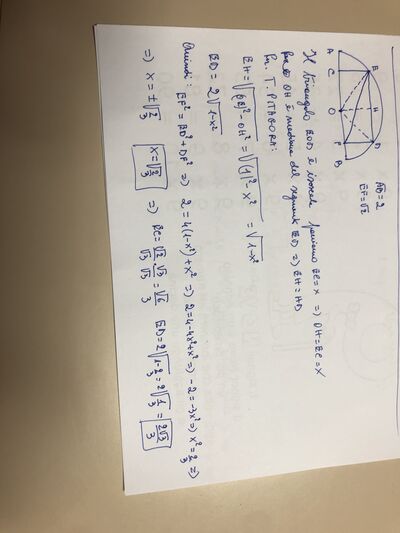 A C O F B
E H D
AB = 2
EF = √2
Il triangolo EOD è isoscele poniamo EC = x => OH = EC = x
OH è mediana del segmento ED => EH = HD
Per. T. PITAGORA:
EH = √(OE)² - OH² = √(1)² - x² = √1-x²
ED = 2√1-x²
Quindi:
EF² = ED² + DF² => 2 = 4(1-x²) + x² => 2 = 4 - 4x² + x² => -2 = -3x² => x² = 2/3 =>
=> x = ±√2/3 x = √2/3 => EC = √2/√3 · √3/√3 = √6/3 ED = 2√1-2/3 = 2√1/3 = 2√3/3